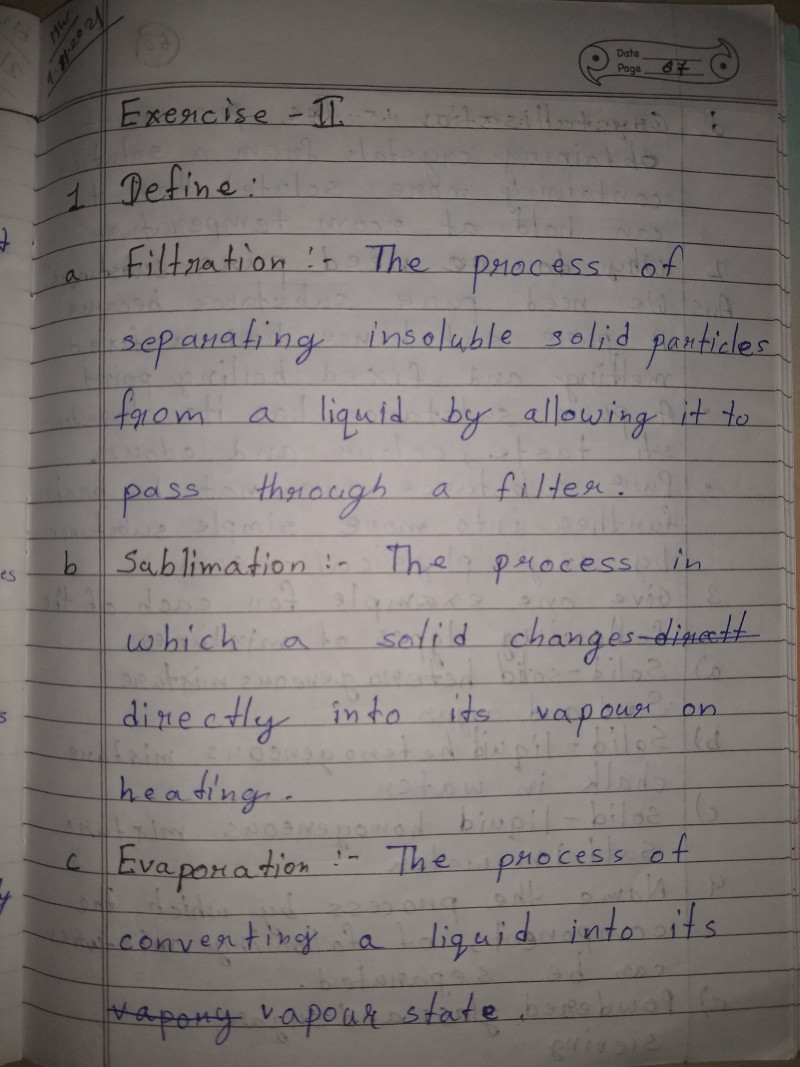 HW
Date
Page 67
Exercise - II
1 Define:
a Filtration :- The process of
separating insoluble solid particles
from a liquid by allowing it to
pass through a filter.
b Sublimation :- The process in
which a solid changes directt
directly into its vapour on
heating.
c Evaporation :- The process of
converting a liquid into its
vapory vapour state.